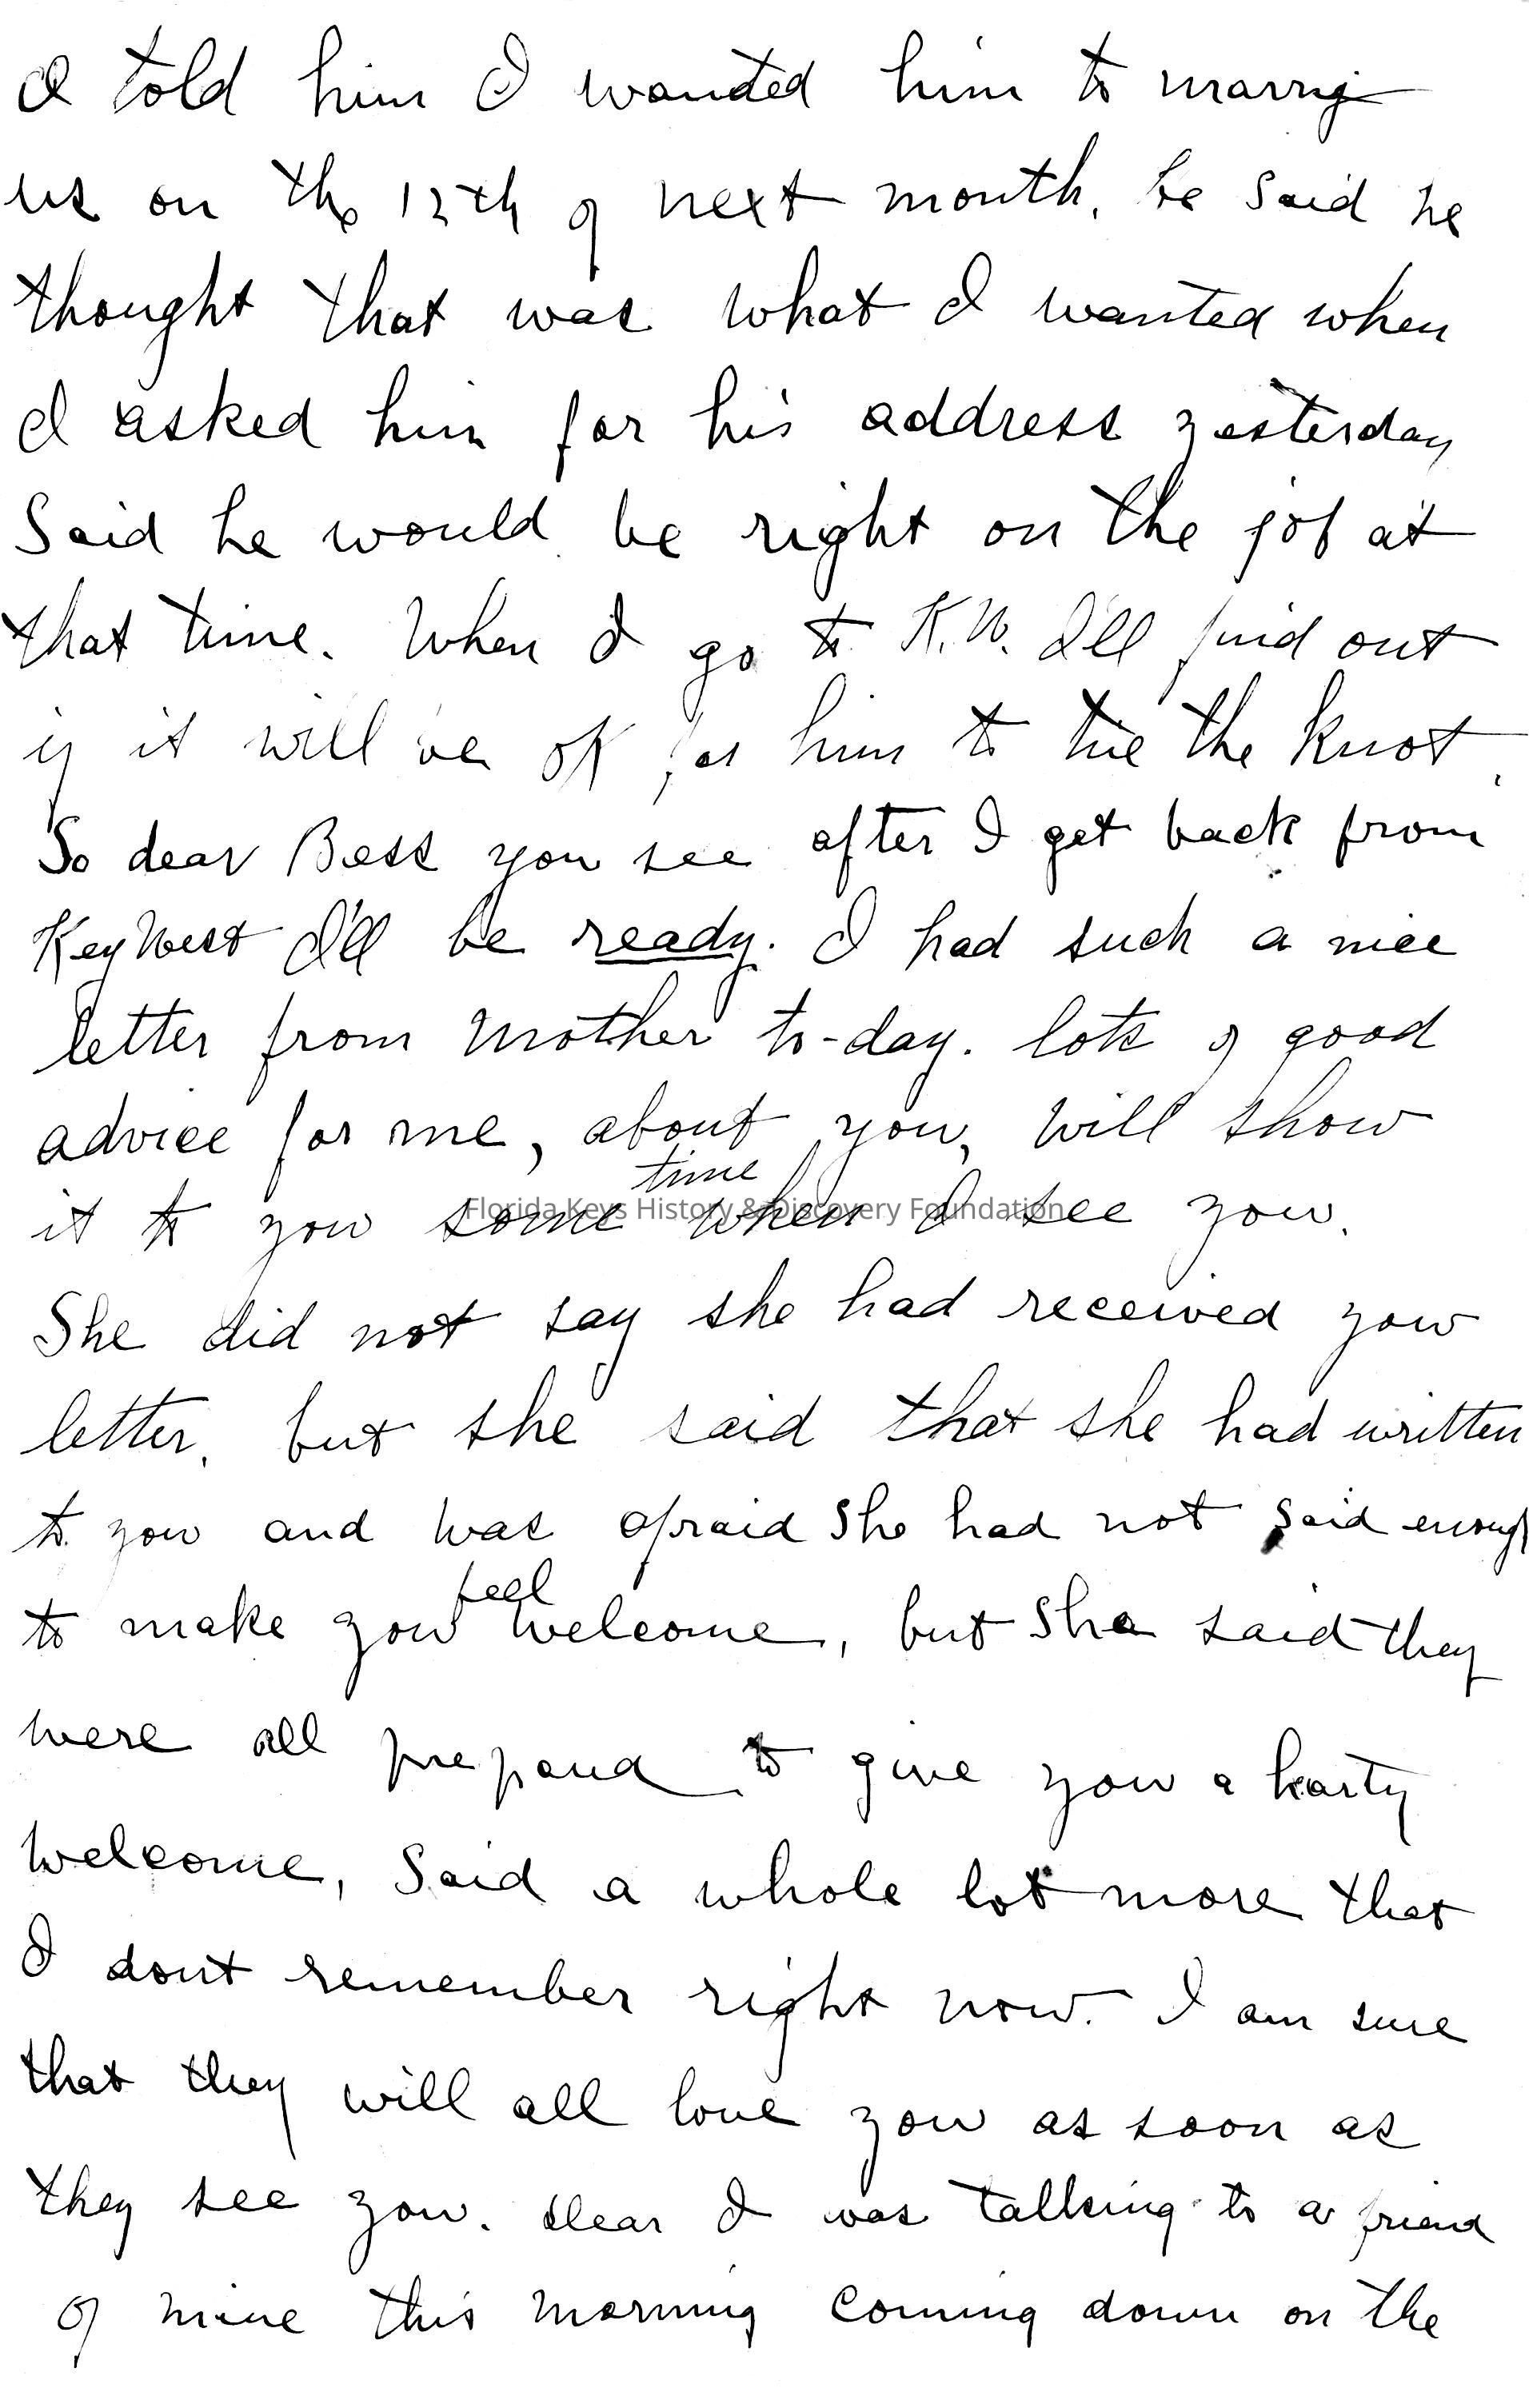 I told him I wanted him to marry
us on the 12th of next month, he said he
thought that was what I wanted when
I asked him for his address yesterday
Said he would be right on the job at
that time. When I go to K.W. I'll find out
if it will be OK for him to tie the knot.
So dear Bess you see after I get back from
Key West I'll be ready. I had such a nice
letter from mother to-day. lots of good
advice for me, about you, will show
it to you some time when I see you.
Florida Keys History & Discovery Foundation
She did not say she had received your
letter, but she said that she had written
to you and was afraid she had not said enough
to make you feel welcome, but she said they
were all prepared to give you a hearty
welcome, Said a whole lot more that
I dont remember right now. I am sure
that they will all love you as soon as
they see you. Dear I was talking to a friend
of mine this morning coming down on the